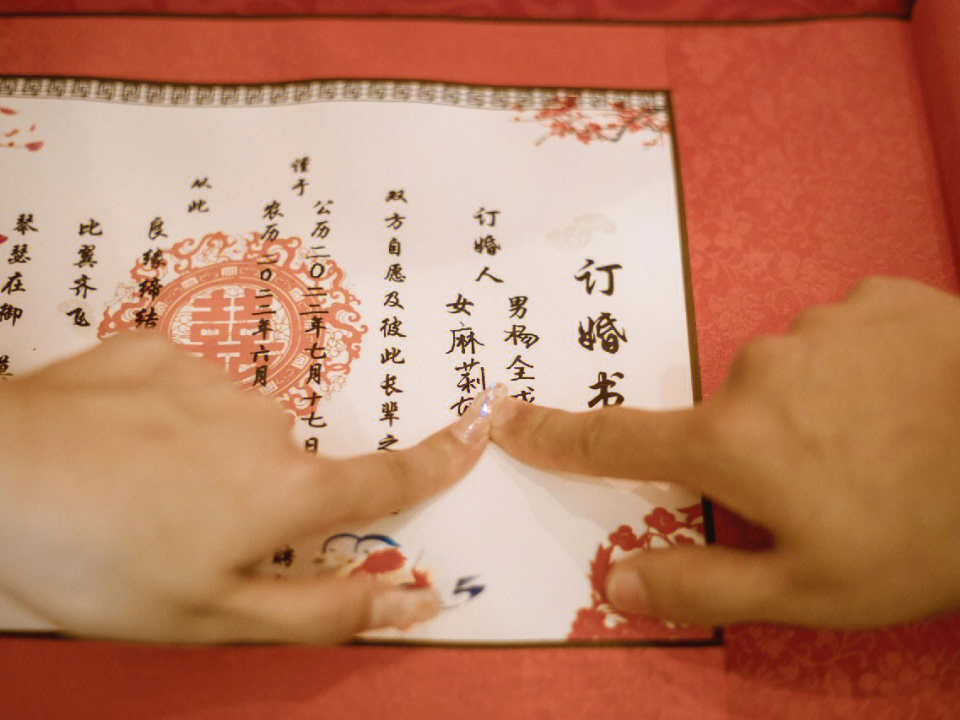 订婚书
订婚人
男杨全
女麻莉
双方自愿及彼此长辈之
谨于
公历二〇二二年七月十七日
农历二〇二二年六月
从此
良缘缔结
比翼齐飞
琴瑟在御
囍